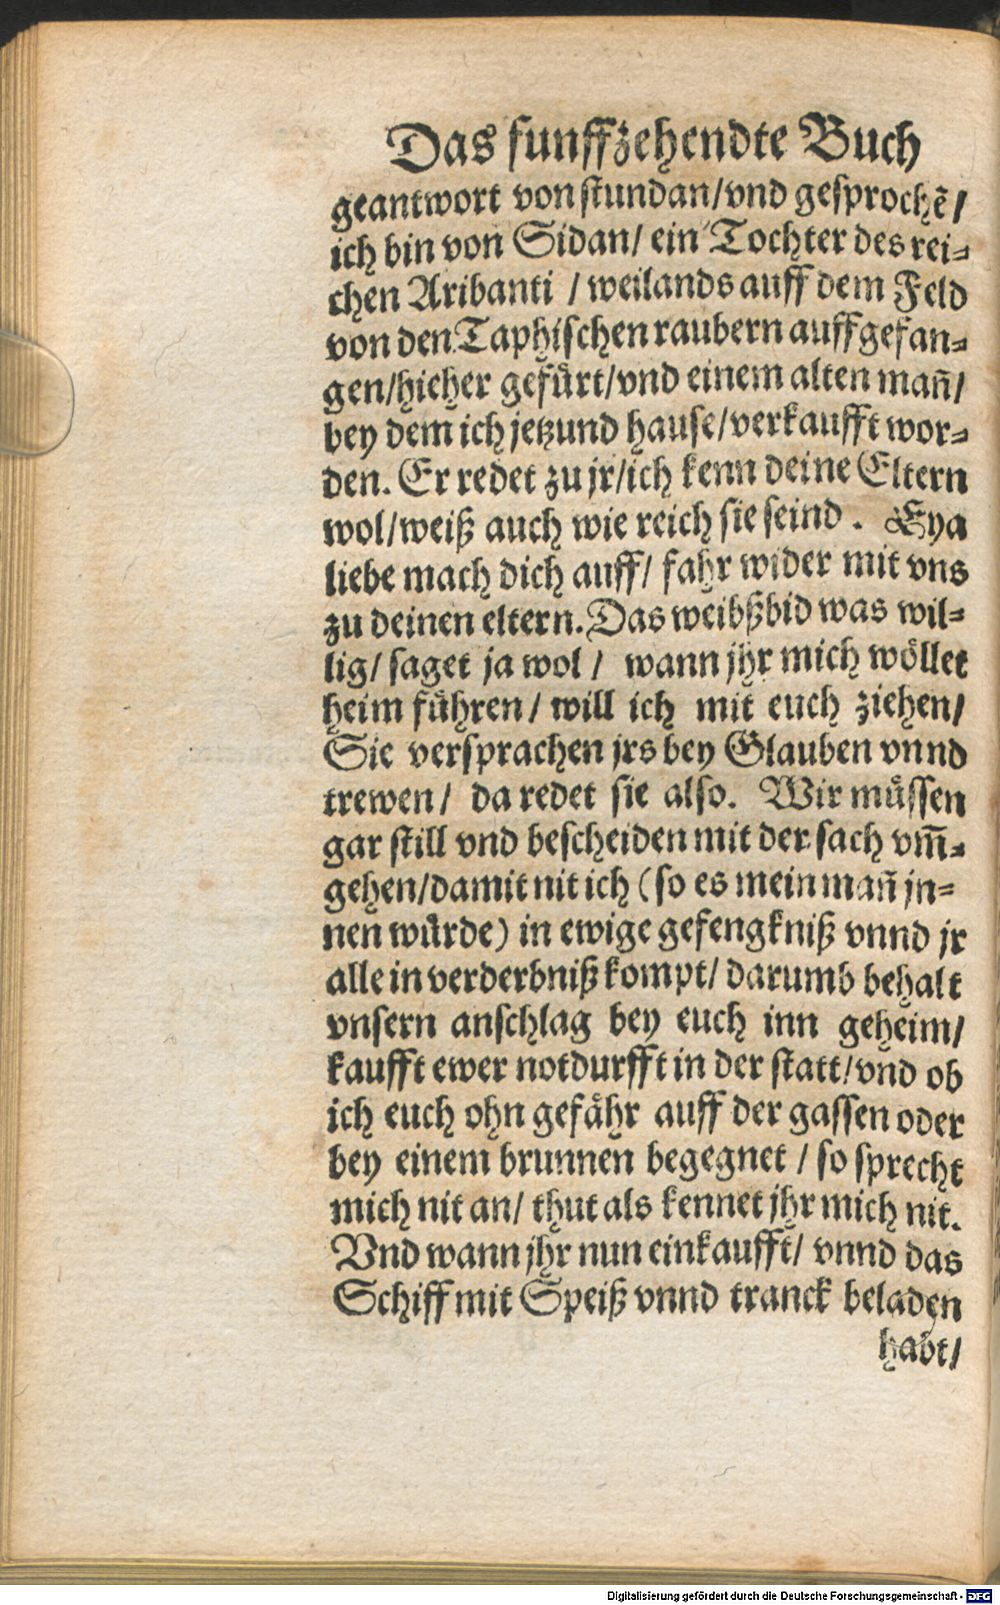 Das funffzehendte Buch
geantwort von stundan/vnd gesprochẽ/
ich bin von Sidan/ ein Tochter des rei-
chen Aribanti / weilands auff dem Feld
von den Taphischen raubern auffgefan-
gen/hieher gefuͤrt/vnd einem alten mañ/
bey dem ich jetzund hause/verkaufft wor-
den. Er redet zu jr/ich kenn deine Eltern
wol/weiß auch wie reich sie seind . Eya
liebe mach dich auff/ fahr wider mit vns
zu deinen eltern. Das weibßbid was wil-
lig/ saget ja wol / wann jhr mich woͤllet
heim fuͤhren/ will ich mit euch ziehen/
Sie versprachen jrs bey Glauben vnnd
trewen/ da redet sie also. Wir muͤssen
gar still vnd bescheiden mit der sach vm̃-
gehen/damit nit ich (so es mein mañ jn-
nen wuͤrde) in ewige gefengkniß vnnd jr
alle in verderbniß kompt/ darumb behalt
vnsern anschlag bey euch inn geheim/
kaufft ewer notdurfft in der statt/vnd ob
ich euch ohn gefaͤhr auff der gassen oder
bey einem brunnen begegnet / so sprecht
mich nit an/ thut als kennet jhr mich nit.
Vnd wann jhr nun einkaufft/ vnnd das
Schiff mit Speiß vnnd tranck beladen
habt/
Digitalisierung gefördert durch die Deutsche Forschungsgemeinschaft - DFG